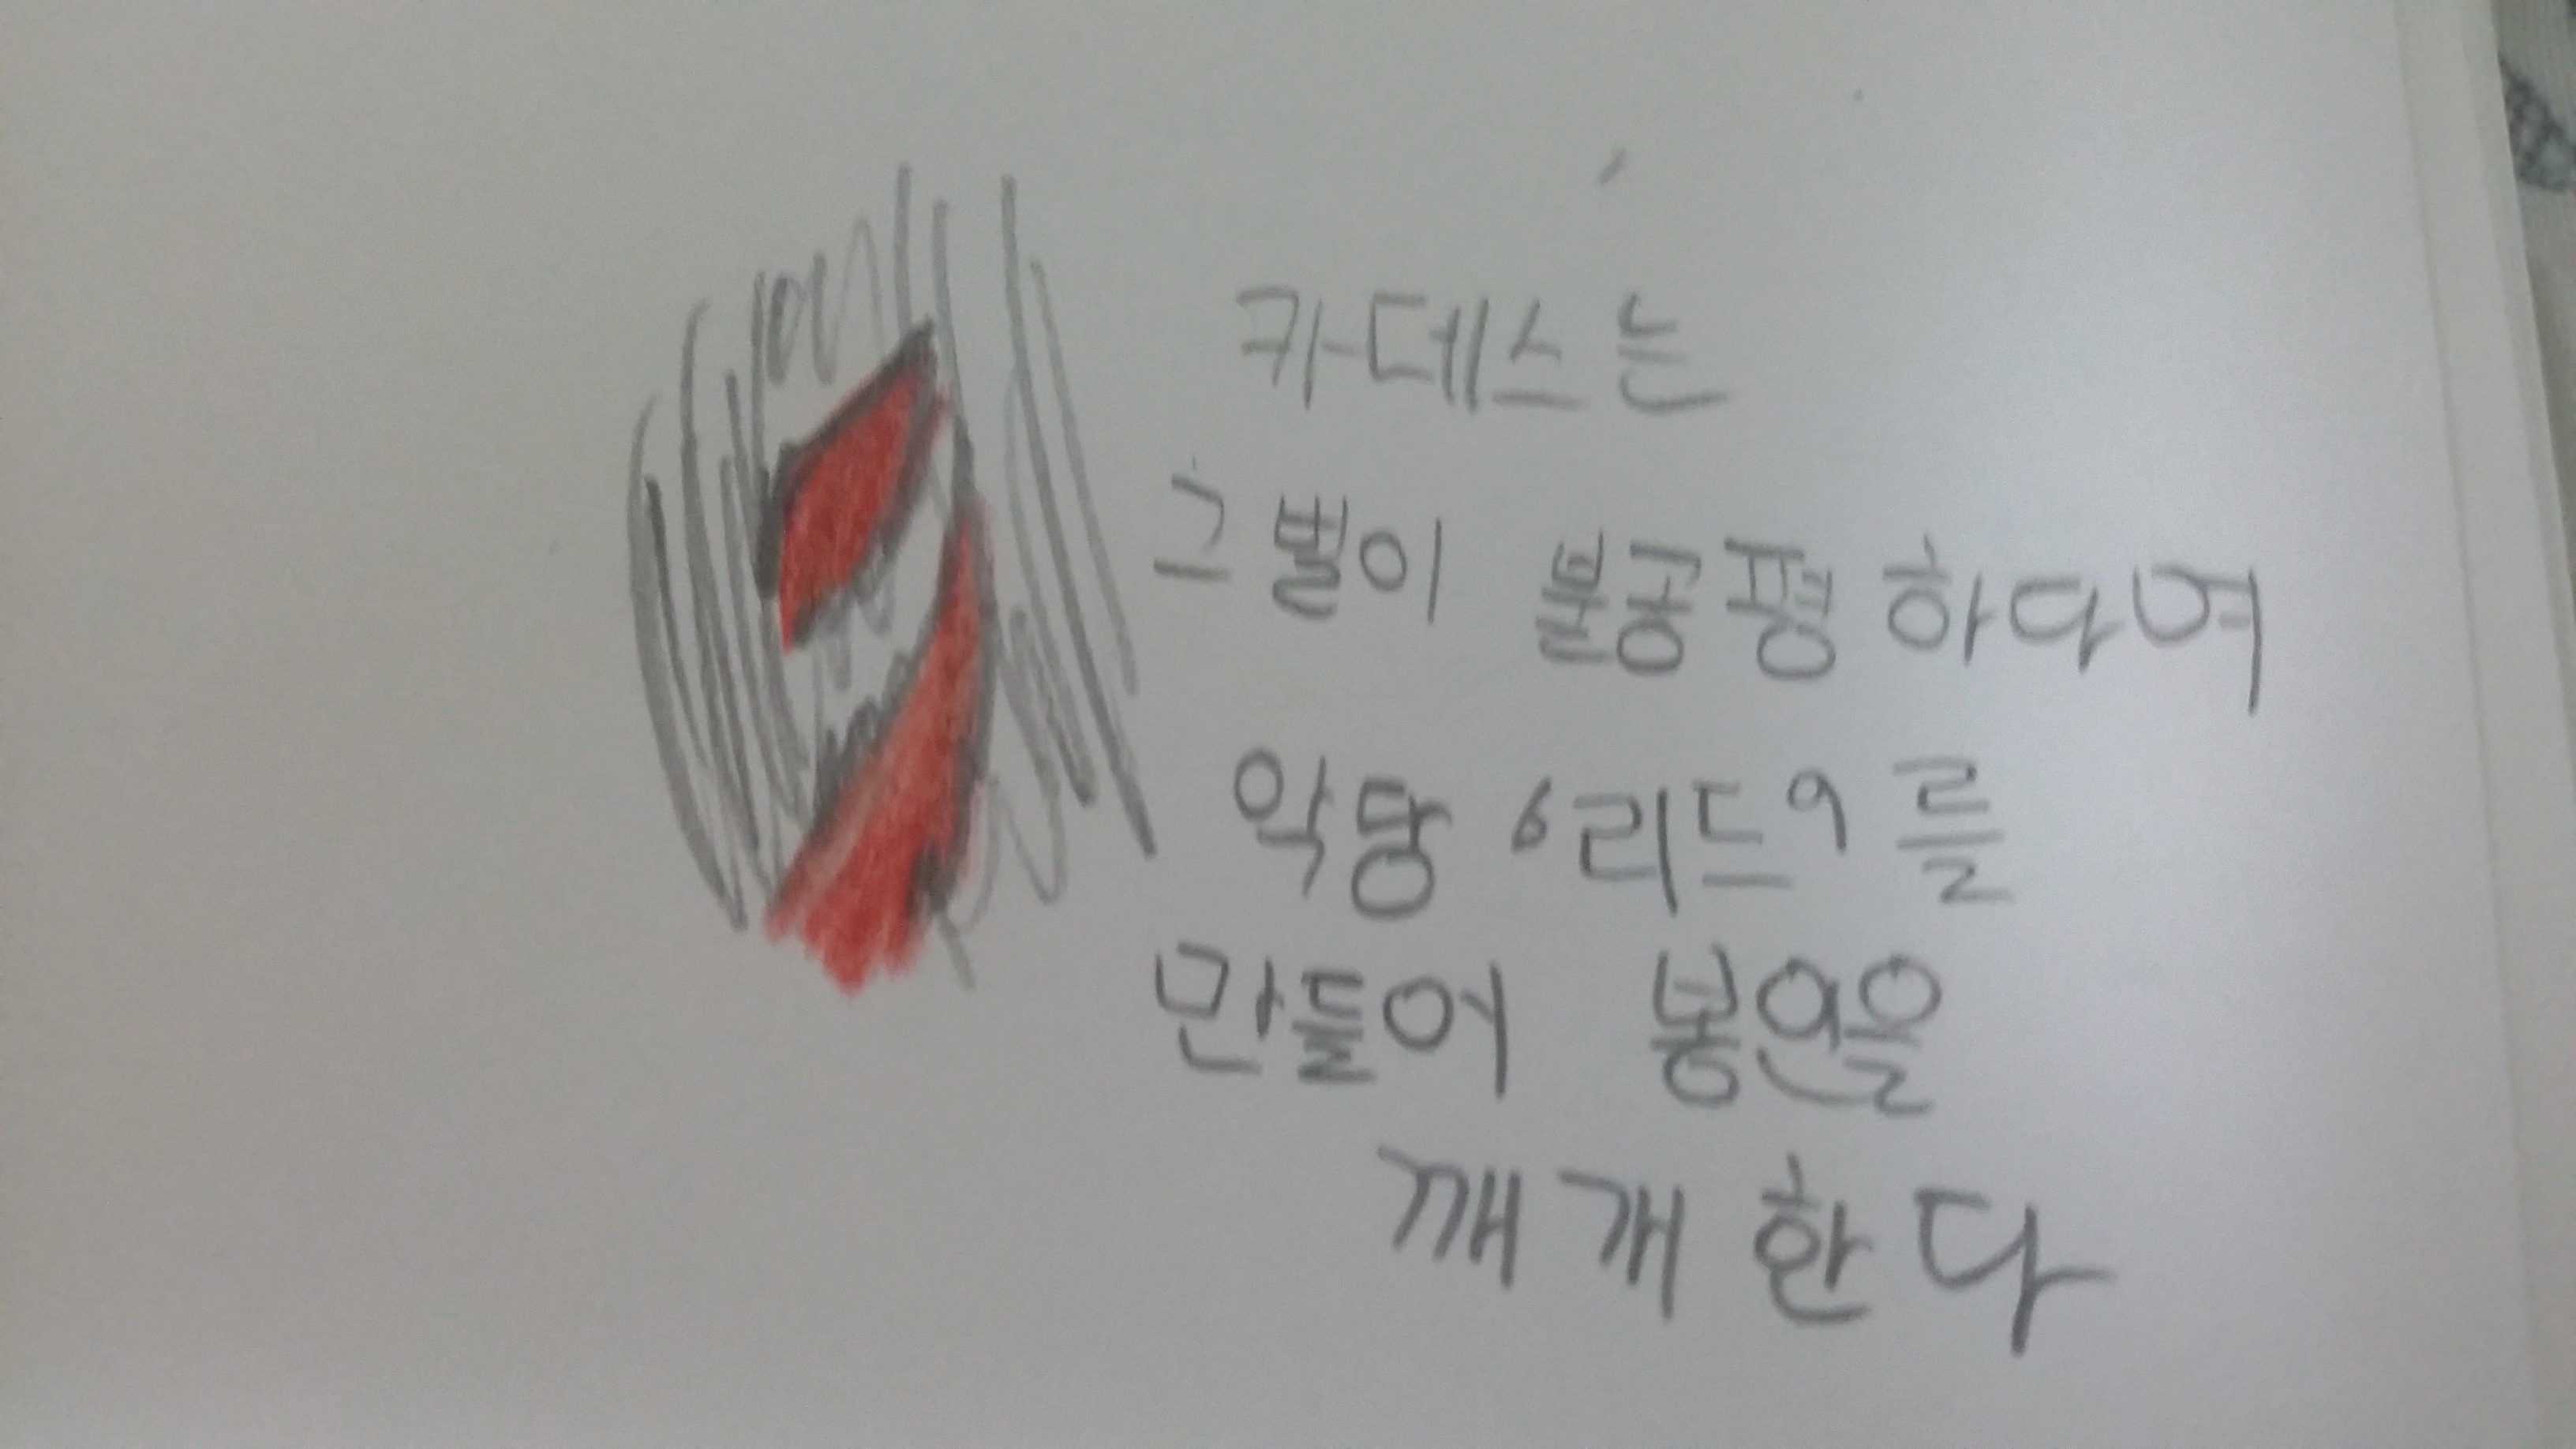 카데스는
그벌이 불공평하다며
악당 '리드'를
만들어 봉인을
깨개한다